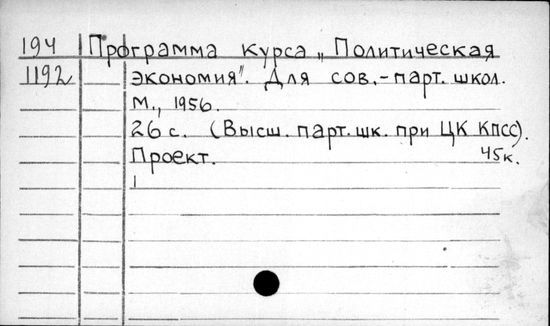 194 Программа курса „Политическая
1192 экономия". Для сов.-парт. школ.
М., 1956.
26 с. (Высш. парт. шк. при ЦК КПСС).
Проект. 45к.
1